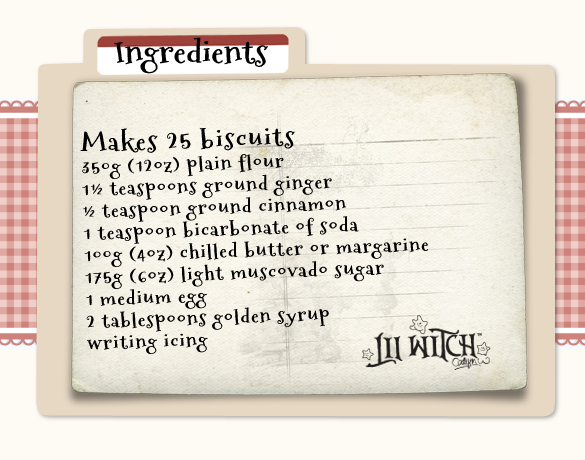 Ingredients
Makes 25 biscuits
350g (12oz) plain flour
1½ teaspoons ground ginger
½ teaspoon ground cinnamon
1 teaspoon bicarbonate of soda
100g (4oz) chilled butter or margarine
175g (6oz) light muscovado sugar
1 medium egg
2 tablespoons golden syrup
writing icing
LIL WITCH™